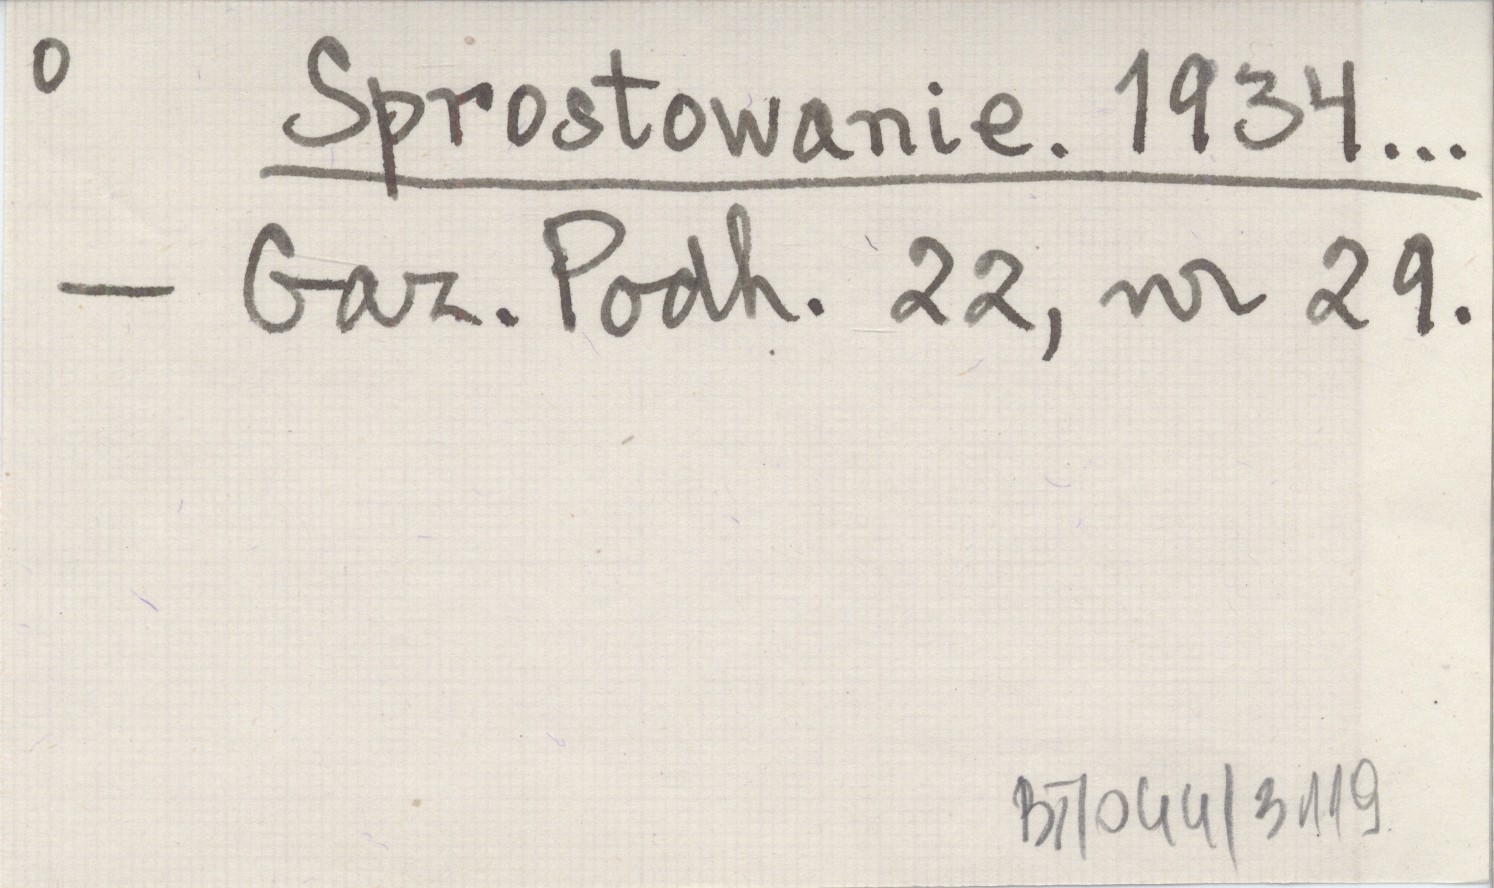 o Sprostowanie. 1934...
— Gaz. Podh. 22, nr 29.
BT/044/3119